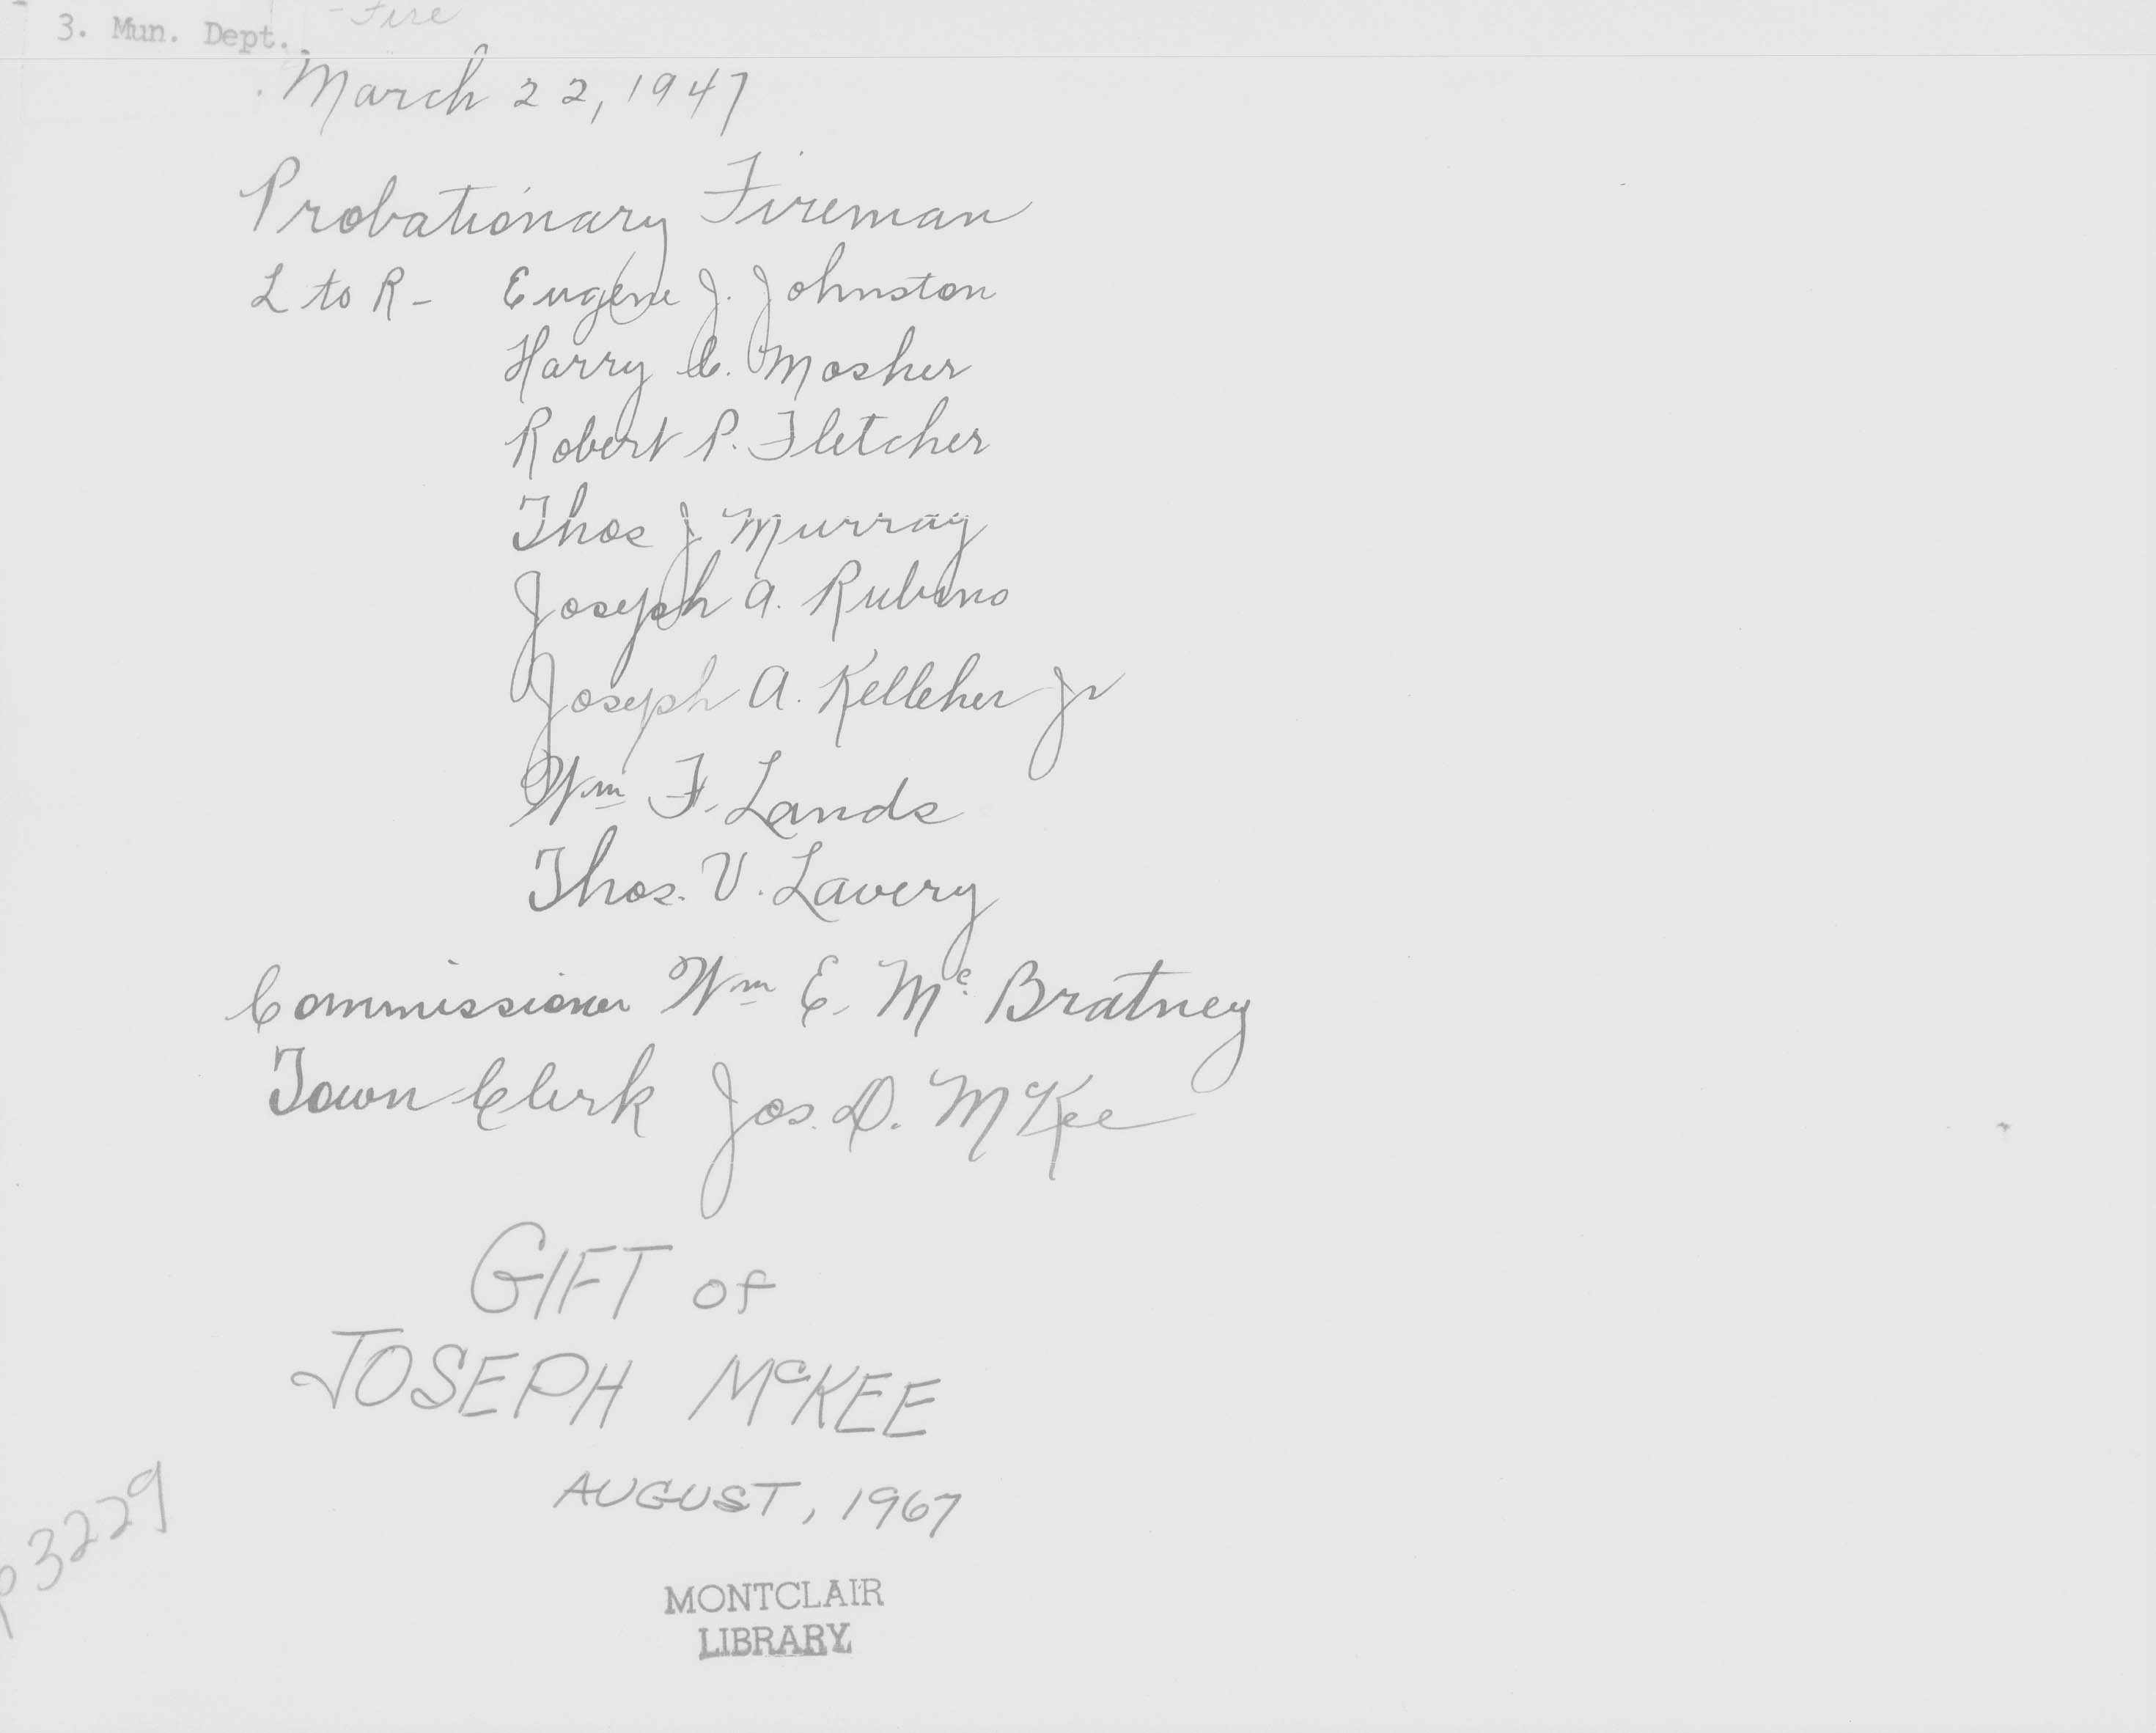 3. Mun. Dept. - Fire
March 22, 1947
Probationary Fireman
L to R - Eugene J. Johnston
Harry C. Mosher
Robert P. Fletcher
Thos J Murray
Joseph A. Rubino
Joseph A. Kelleher Jr
Wm F. Lands
Thos. V. Lavery
Commissioner Wm E. Mc Bratney
Town Clerk Jos. D. McKee
GIFT of
JOSEPH McKEE
AUGUST, 1967
p3229
MONTCLAIR
LIBRARY